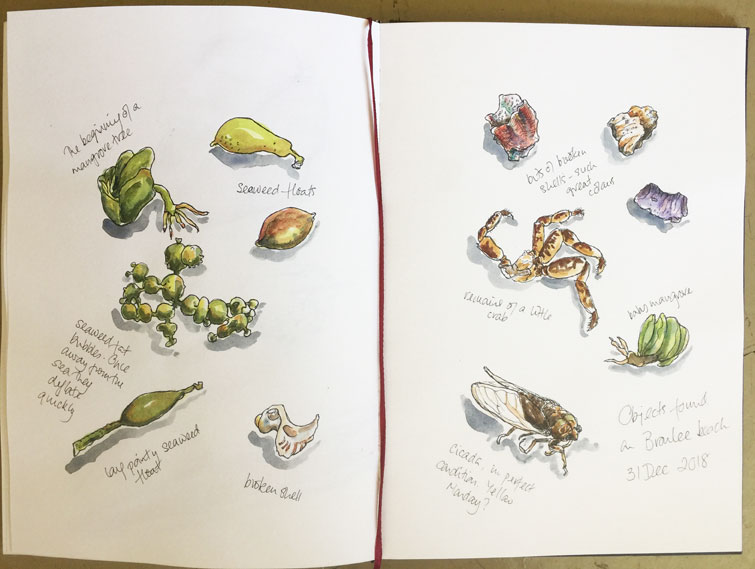 The beginning of a
mangrove tree
seaweed floats
seaweed fat
bubbles. Once
away from the
sea they
deflate
quickly
long pointy seaweed
float
broken shell
bits of broken
shells - such
great
colours
remains of a little
crab
baby mangrove
cicada in perfect
condition. Yellow
Monday?
Objects found
on Braulee beach
31 Dec 2018